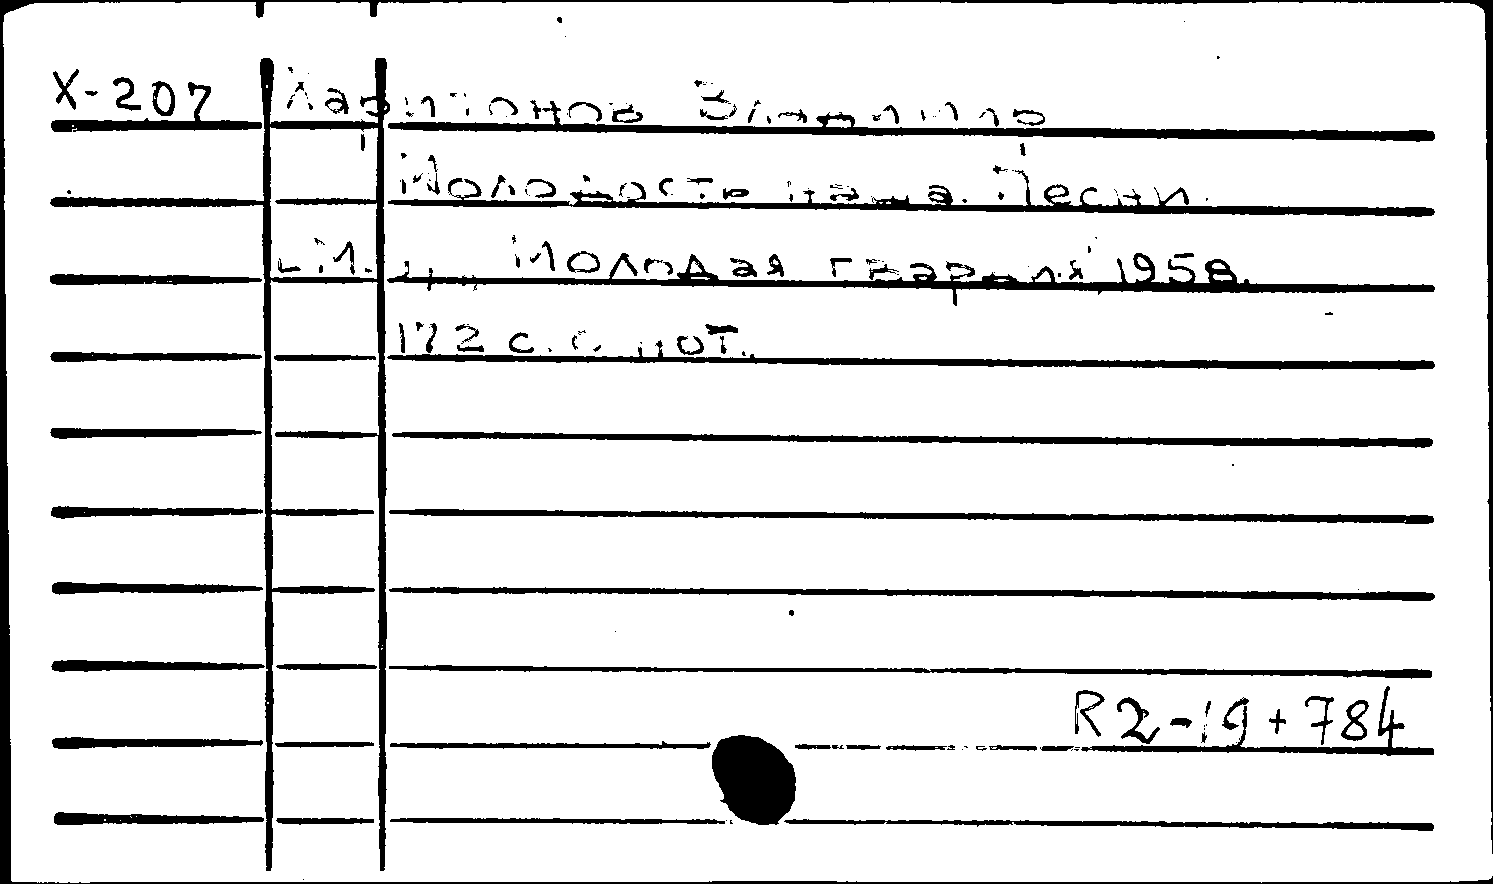 X-207 Харитонов Владимир
Молодость наша. Песни.
М., "Молодая гвардия" 1958.
172 с. с нот.
R2-19+784